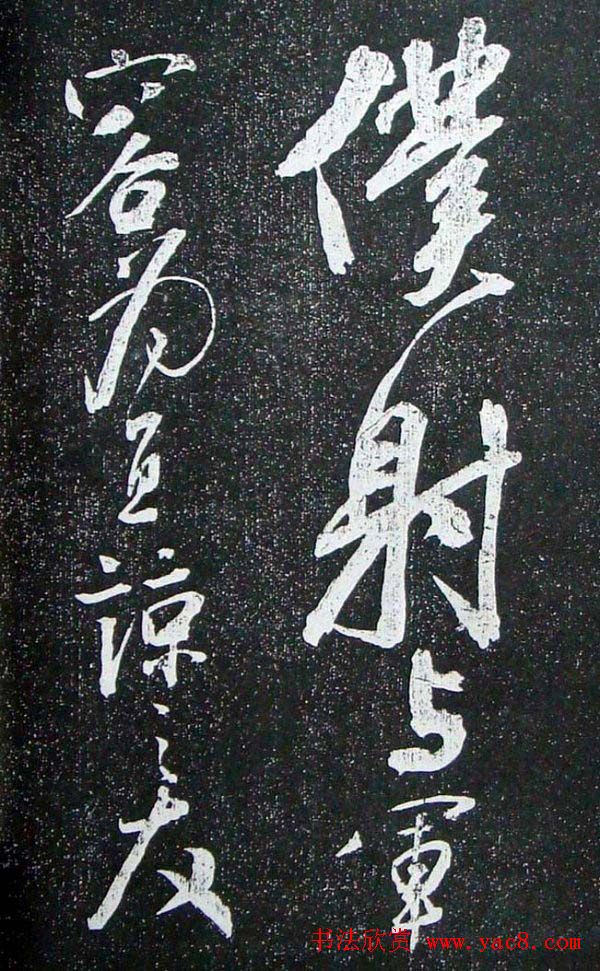 僕射与軍
容為直諒之友
书法欣赏 www.yac8.com